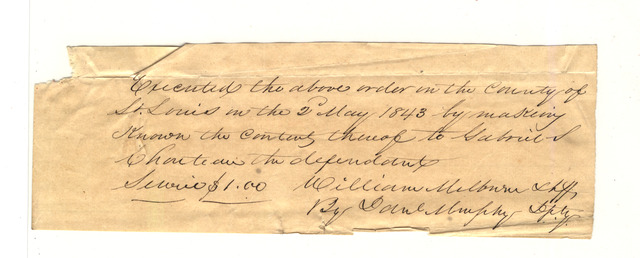 Executed the above order in the County of
St. Louis on the 2d May 1843 by making
Known the contents thereof to Gabriel S
Chouteau the defendant
Service $1.00 William Milburn Shff
By Danl Murphy Dpty